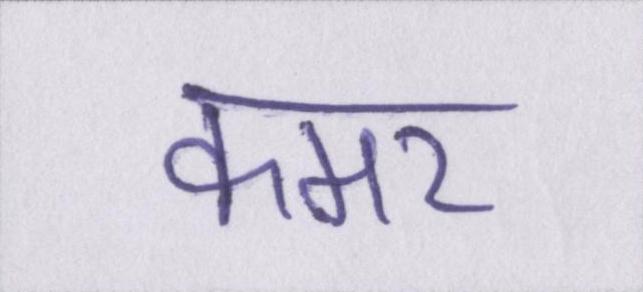 कमर